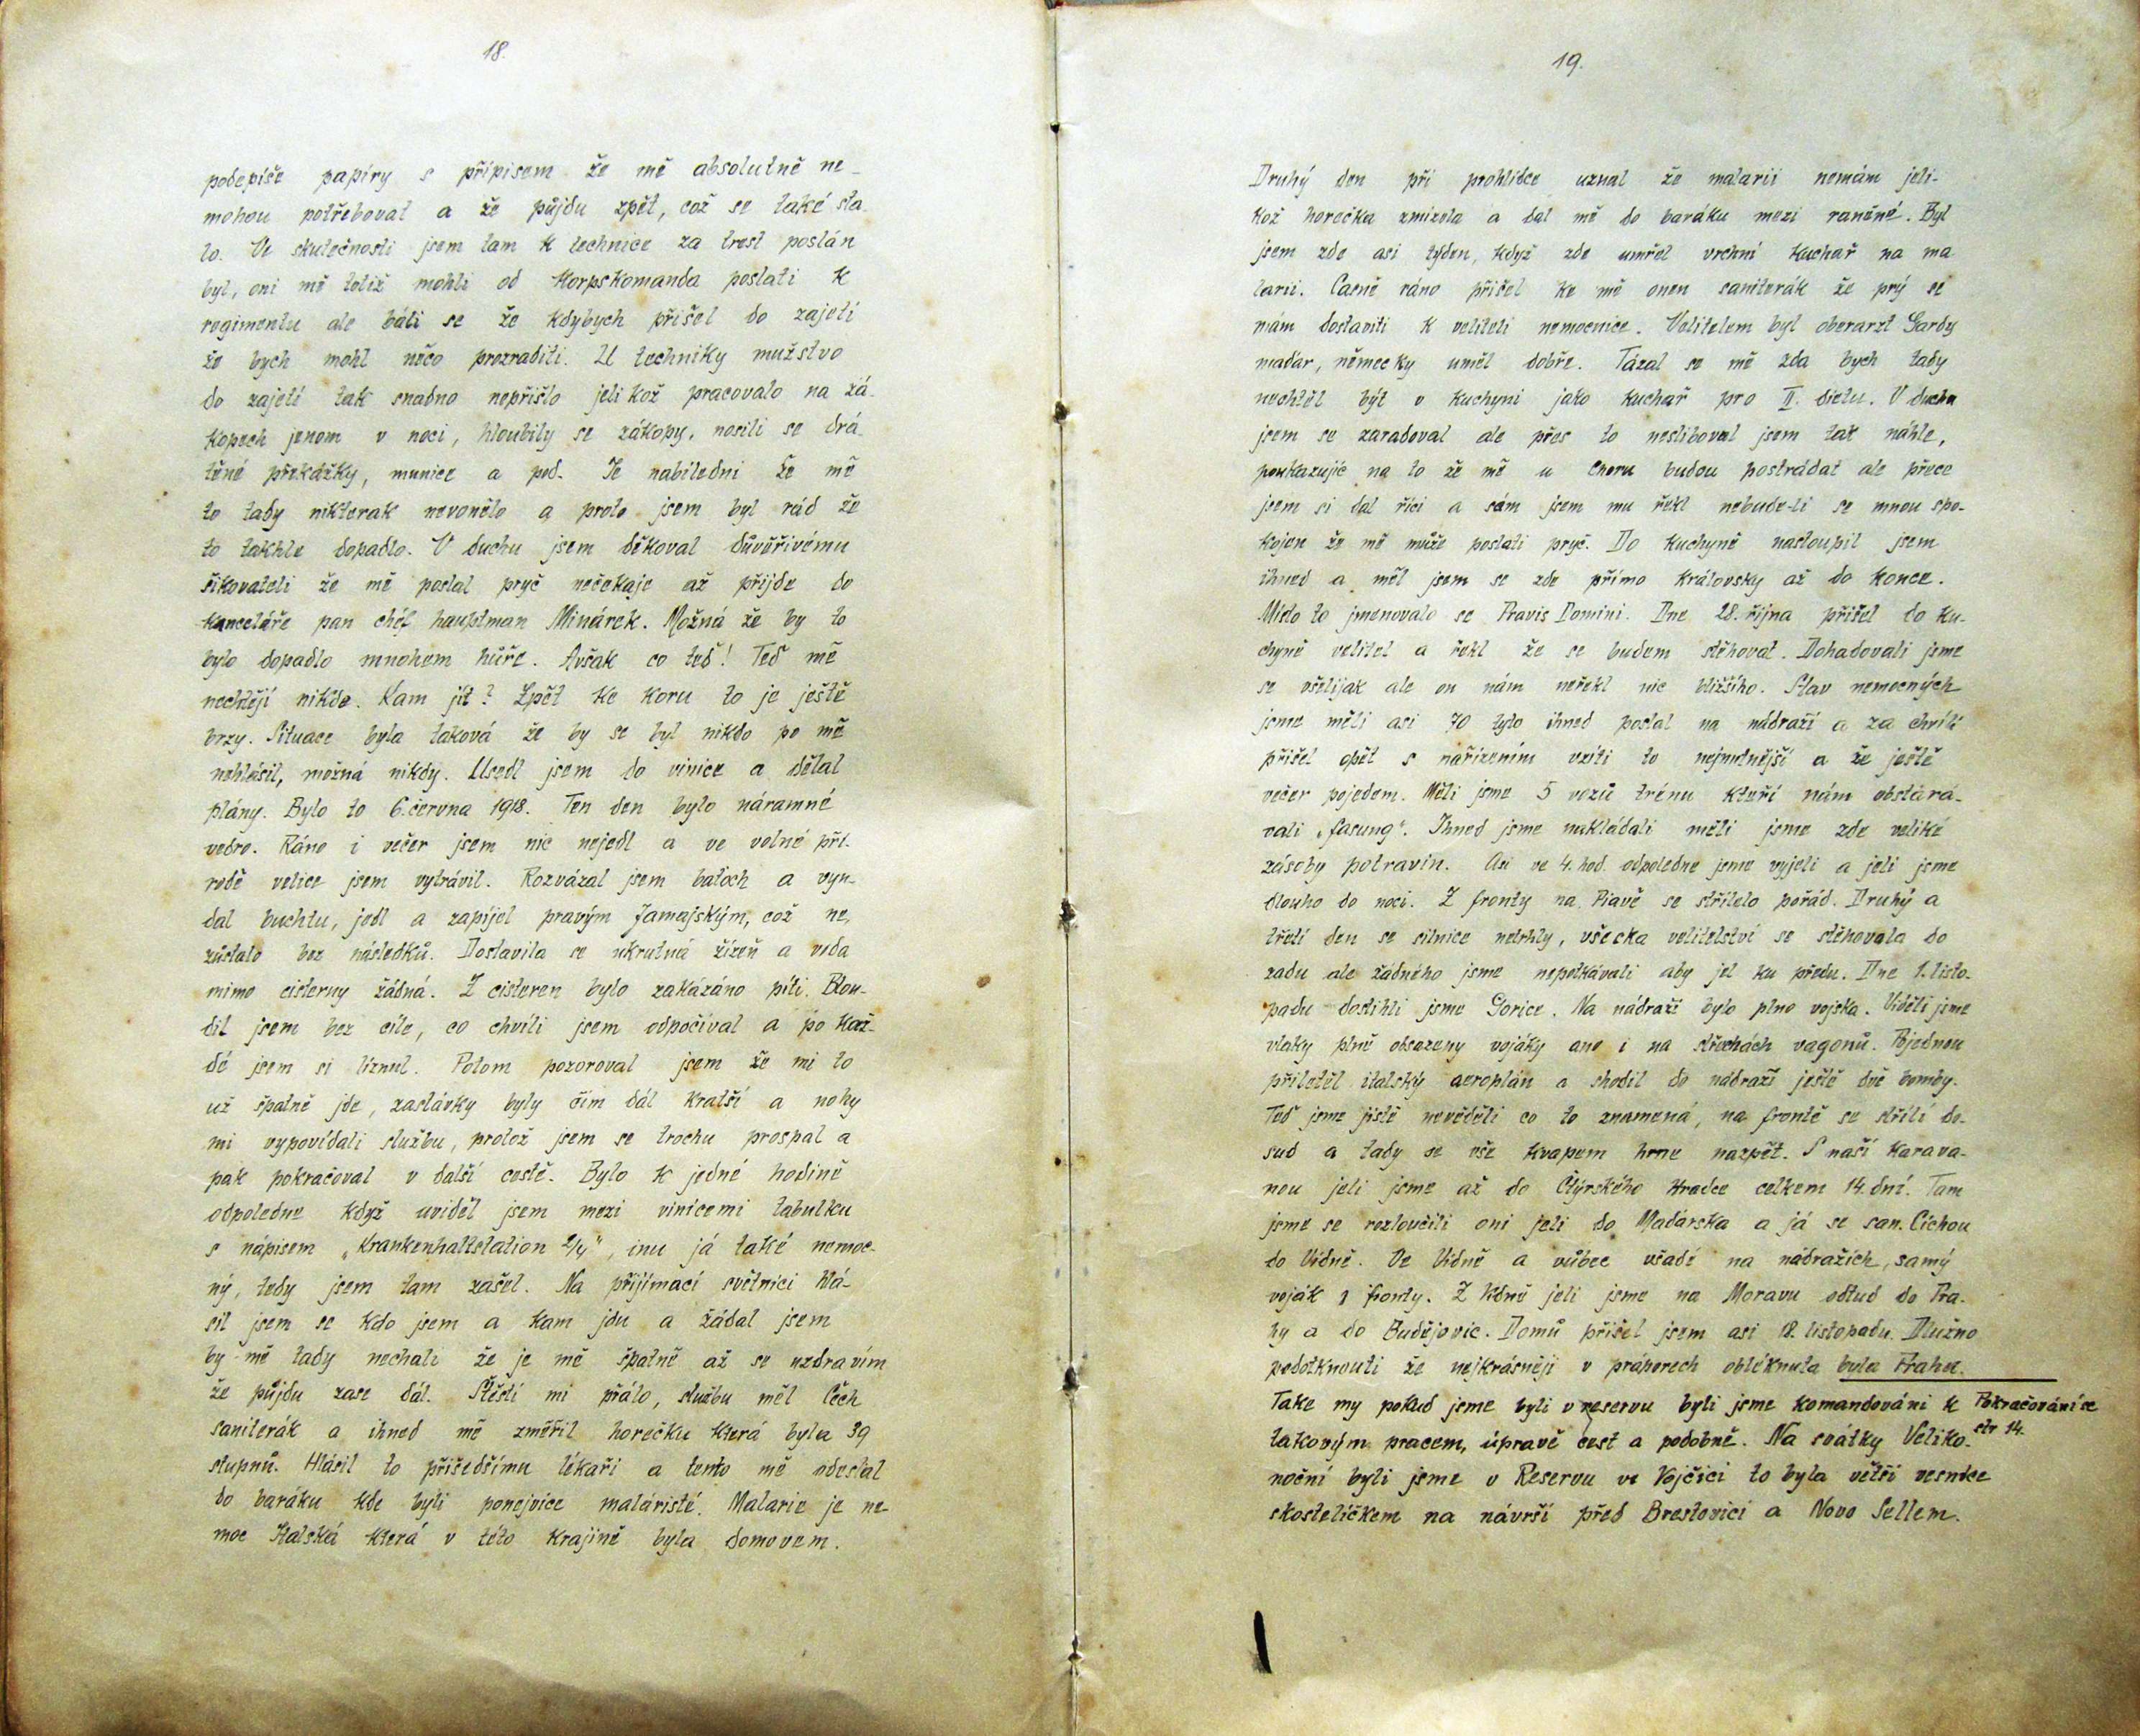 18.
podepíše papíry s přípisem že mě absolutně ne-
mohou potřeboval a že půjdu zpět, což se také sta-
lo. Ve skutečnosti jsem tam k technice za trest poslán
byl, oni mě totiž mohli od Korpskomanda poslati k
regimentu ale báli se že kdybych přišel do zajetí
že bych mohl něco prozraditi. U techniky mužstvo
do zajetí tak snadno nepřišlo jelikož pracovalo na zá-
kopech jenom v noci, hloubily se zákopy, nosili se drá-
těné překážky, munice a pod. Je nabíledni že mě
to tady nikterak nevonělo a proto jsem byl rád že
to takhle dopadlo. V duchu jsem děkoval důvěřivému
šikovateli že mě poslal pryč nečekaje až přijde do
kanceláře pan chéf hauptman Minárek. Možná že by to
bylo dopadlo mnohem hůře. Avšak co teď! Teď mě
nechtějí nikde. Kam jít? Zpět ke koru to je ještě
brzy. Situace byla taková že by se byl nikdo po mě
nehlásil, možná nikdy. Usedl jsem do vinice a dělal
plány. Bylo to 6. června 1918. Ten den bylo náramné
vedro. Ráno i večer jsem nic nejedl a ve volné pří-
rodě velice jsem vytrávil. Rozvázal jsem batoch a vyn-
dal buchtu, jedl a zapíjel pravým Jamajským, což ne,
zůstalo bez následků. Dostavila se ukrutná žízeň a voda
mimo cisterny žádná. Z cisteren bylo zakázáno píti. Blou-
dil jsem bez cíle, co chvíli jsem odpočíval a po kaž-
dé jsem si líznul. Potom pozoroval jsem že mi to
už špatně jde, zastávky byly čím dál kratší a nohy
mi vypovídali službu, protož jsem se trochu prospal a
pak pokračoval v další cestě. Bylo k jedné hodině
odpoledne když uviděl jsem mezi vinicemi tabulku
s nápisem „Krankenhaltstation 2/4", inu já také nemoc-
ný, tedy jsem tam zašel. Na přijímací světnici hlá-
sil jsem se kdo jsem a kam jdu a žádal jsem
by mě tady nechali že je mě špatně až se uzdravím
že půjdu zase dál. Štěstí mi přálo, službu měl čech
saniterák a ihned mě změřil horečku která byla 39
stupnů. Hlásil to přišedšímu lékaři a tento mě odeslal
do baráku kde byli ponejvíce maláristé. Malarie je ne-
moc Italská která v této krajině byla domovem.
19.
Druhý den při prohlídce uznal že malarii nemám jeli-
kož horečka zmizela a dal mě do baráku mezi raněné. Byl
jsem zde asi týden, když zde umřel vrchní kuchař na ma
larii. Časně ráno přišel ke mě onen saniterák že prý se
mám dostaviti k veliteli nemocnice. Velitelem byl oberarzt Gardy
maďar, německy uměl dobře. Tázal se mě zda bych tady
nechtěl být v kuchyni jako kuchař pro II. dietu. V duchu
jsem se zaradoval ale přes to nesliboval jsem tak náhle,
poukazujíc na to že mě u Choru budou postrádat ale přece
jsem si dal říci a sám jsem mu řekl nebude-li se mnou spo-
kojen že mě může poslati pryč. Do kuchyně nastoupil jsem
ihned a měl jsem se zde přímo královsky až do konce.
Místo to jmenovalo se Pravis Domini. Dne 28. října přišel do ku-
chyně velitel a řekl že se budem stěhovat. Dohadovali jsme
se všelijak ale on nám neřekl nic bližšího. Stav nemocných
jsme měli asi 70 tyto ihned poslal na nádraží a za chvíli
přišel opět s nařízením vzíti to nejnutnější a že ještě
večer pojedem. Měli jsme 5 vozů trénu kteří nám obstara-
vali „fasung". Ihned jsme nakládali měli jsme zde veliké
zásoby potravin. Asi ve 4. hod. odpoledne jsme vyjeli a jeli jsme
dlouho do noci. Z fronty na Piavě se střílelo pořád. Druhý a
třetí den se silnice netrhly, všecka velitelství se stěhovala do
zadu ale žádného jsme nepotkávali aby jel ku předu. Dne 1. listo-
padu dostihli jsme Gorice. Na nádraží bylo plno vojska. Viděli jsme
vlaky plně obsazeny vojáky ano i na střechách vagonů. Pojednou
přiletěl italský aeroplán a shodil do nádraží ještě dvě bomby.
Teď jsme jistě nevěděli co to znamená, na frontě se střílí do-
sud a tady se vše kvapem hrne nazpět. S naší karava-
nou jeli jsme až do Štýrského Hradce celkem 14. dní. Tam
jsme se rozloučili oni jeli do Maďarska a já se san. Cíchou
do Vídně. Ve Vídně a vůbec všadě na nádražích, samý
voják z fronty. Z Vídně jeli jsme na Moravu odtud do Pra-
hy a do Budějovic. Domů přišel jsem asi 18. listopadu. Dlužno
podotknouti že nejkrásněji v práporech obléknuta byla Praha.
Take my pokud jsme byli v reservu byli jsme komandováni k
Pokračování ze
str 14.
takovým pracem, úpravě cest a podobně. Na svátky Veliko-
noční byli jsme v Reservu ve Vojčici to byla větší vesnice
skostelíčkem na návrší před Brestovicí a Novo Sellem.